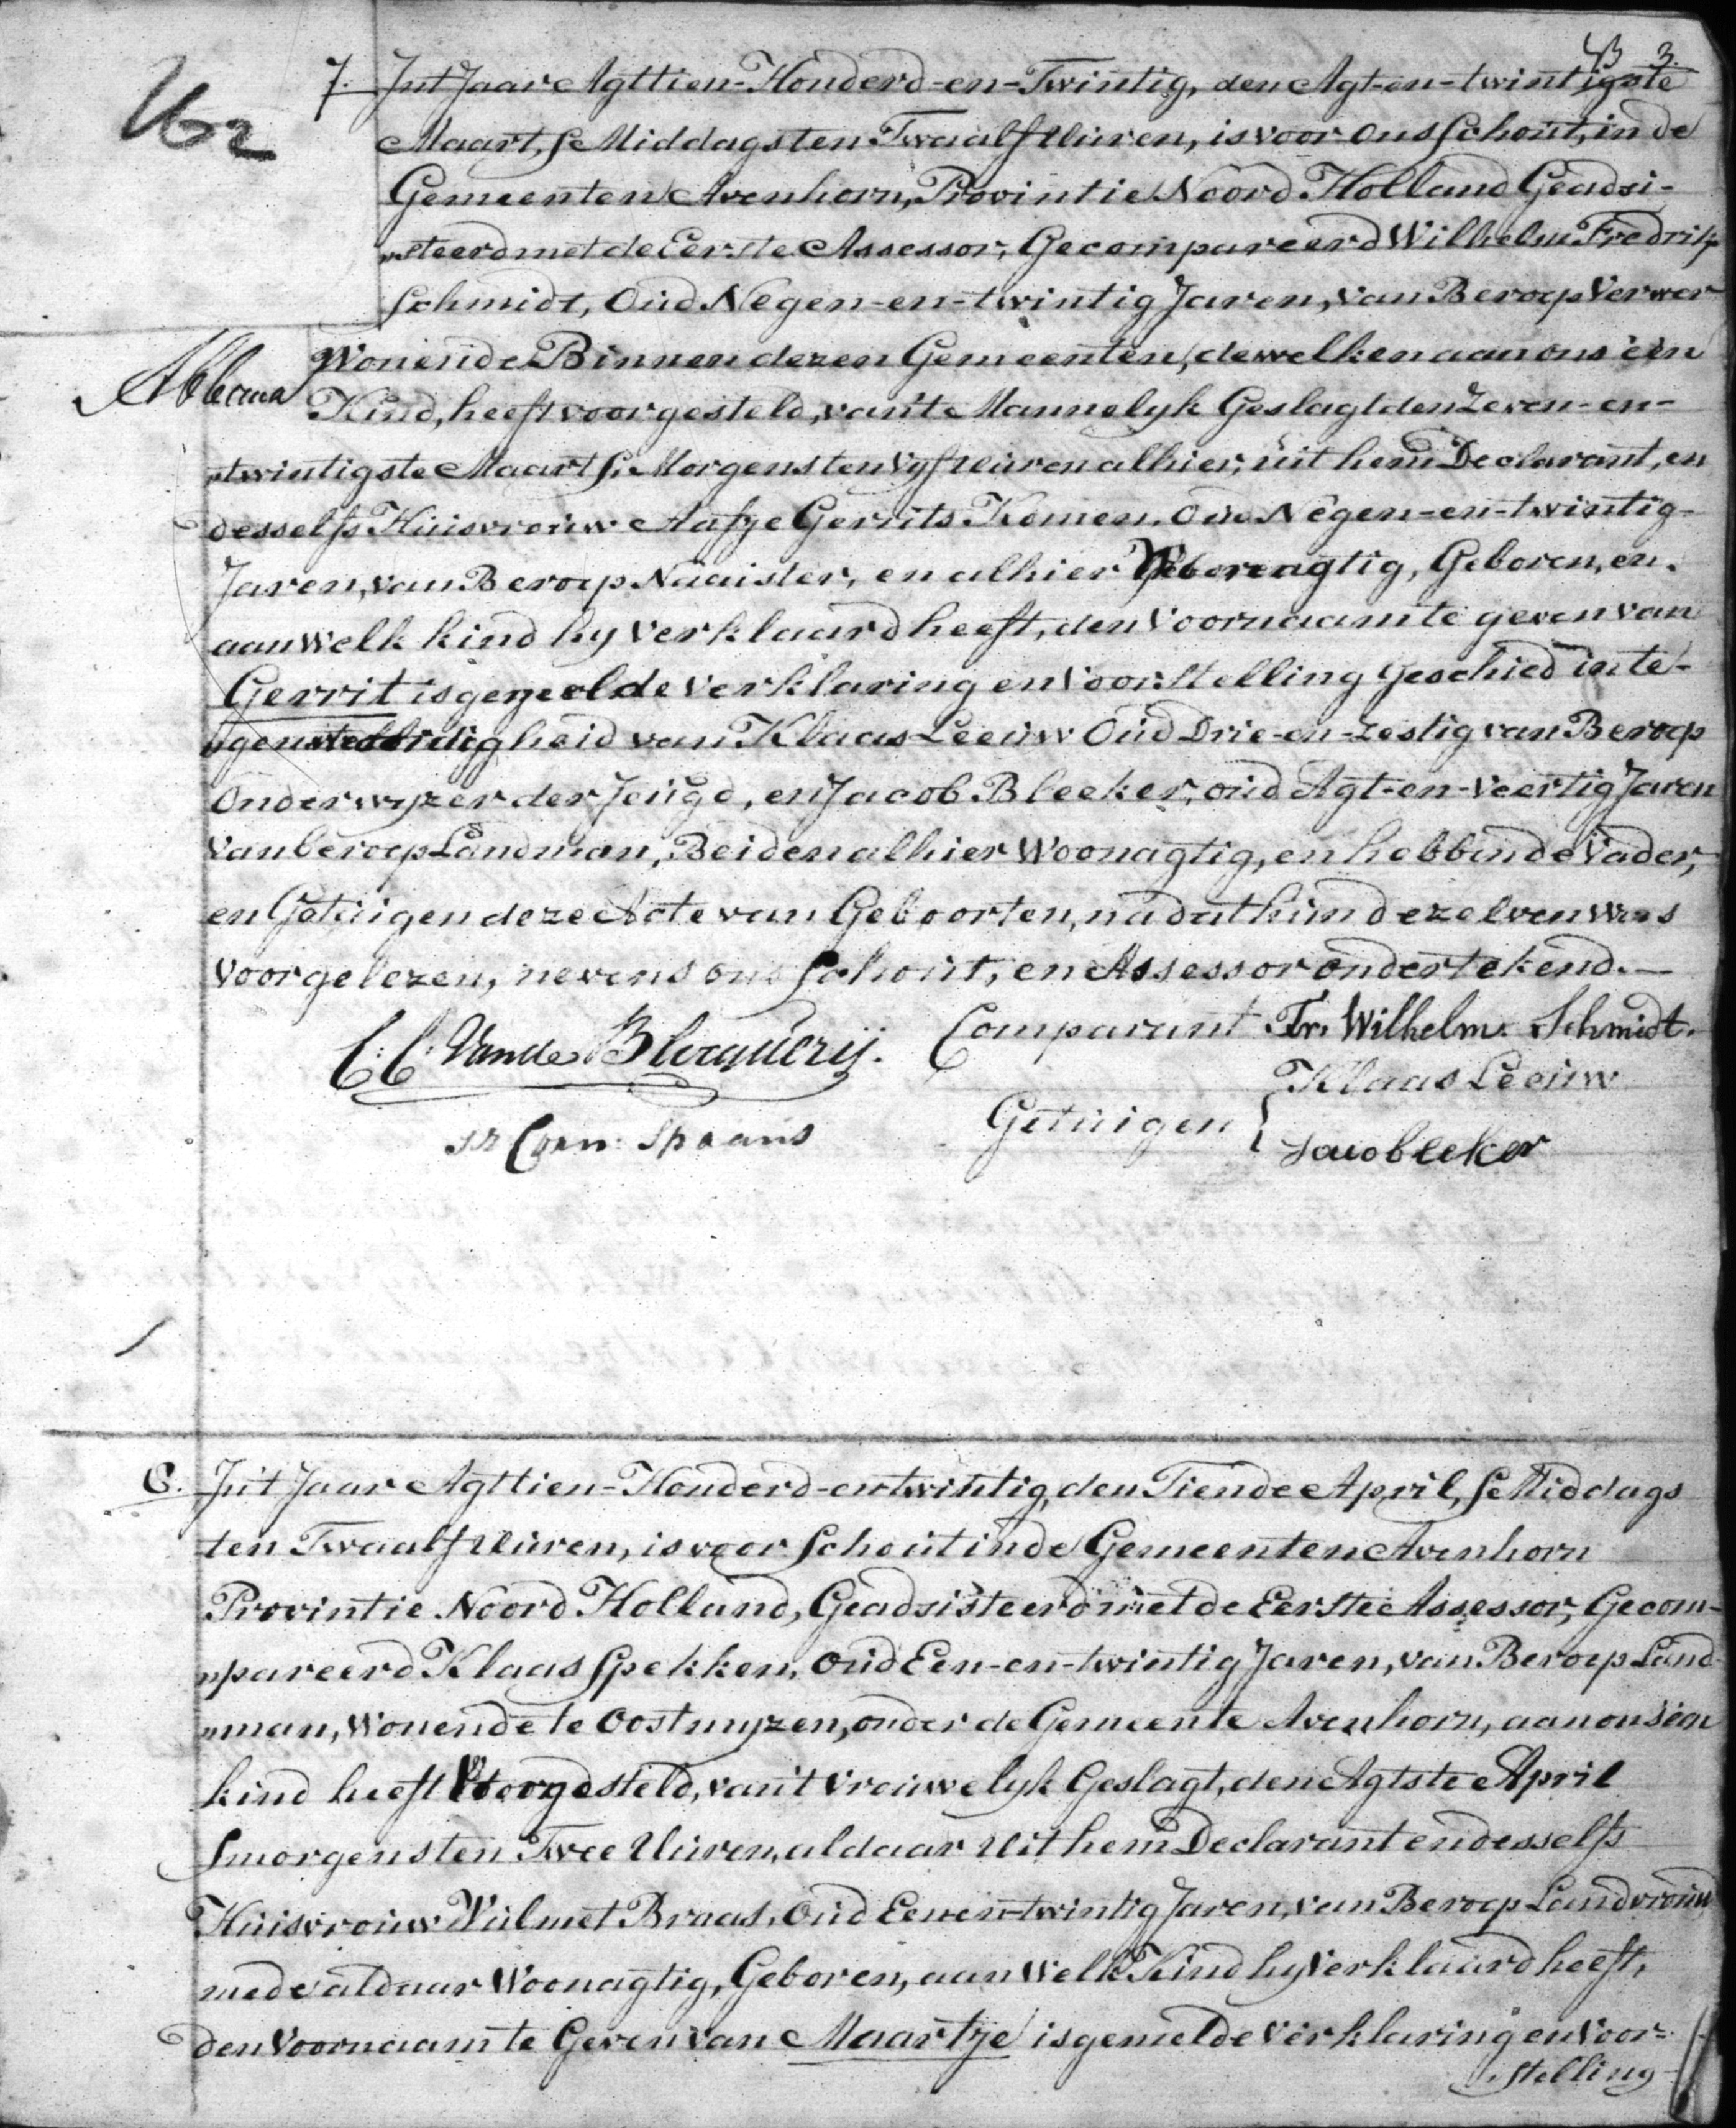 3.
7. Int Jaar Agttien-Honderd-en-Twintig, den Agt-en-twintigste
Maart, s Middags ten Twaalf Uuren, is voor ons Schout, in de
Gemeenten Avenhorn, Provintie Noord Holland Geadsi-
„steerd met de Eerste Assessor, Gecompareerd Wilhelm Fredrik
Schmidt, Oud Negen-en-twintig Jaren, van Beroep Verwer
Wonende Binnen dezen Gemeenten, dewelken aan ons één
Kind, heeft voorgesteld, van't Mannelyk Geslagt den Zeven-en-
„twintigste Maart s Morgens ten Vyf Uuren alhier, uit hem Declarant, en
desselfs Huisvrouw Aafje Gerrits Komen. Oud Negen-en-twintig-
Jaren, van Beroep Naaister, en alhier agtig, Geboren, en.
aan welk kind hy Verklaard heeft, den Voornaam te geven van
Gerrit is gemelde Verklaring en Voorstelling geschied in te-
„genwoordigheid van Klaas Leeuw Oud Drie-en-zestig van Beroep
Onderwyzer der Jeugd, en Jacob Bleeker, oud Agt-en-Veertig Jaren
Van beroep Landman, Beiden alhier Woonagtig, en hebben de Vader,
en Getuigen deze Acte van Geboorten, na dat hun dezelven was
Voorgelezen, nevens ons Schout, en Assessor ondertekend.—
C: C: Vande Blocquerij. Comparant Fr. Wilhelm. Schmidt.
Klaas Leeuw
Corn: Spaans Getuigen {
Jacobleeker
8. In't Jaar Agttien-Honderd-en twintig, den Tiende April, s Middags
ten Twaalf Uuren, is voor Schout in de Gemeenten Avenhorn
Provintie Noord Holland, Geadsisteerd met de Eerste Assessor, Gecom-
„pareerd Klaas Spekken, Oud Een-en-twintig Jaren, van Beroep Land-
„man, Wonende te Oostmyzen, onder de Gemeente Avenhorn, aan ons één
kind heeft Voorgesteld, van't Vrouwelyk Geslagt, den Agtste April
Smorgens ten Twee Uuren, aldaar Uit hem Declarant en desselfs
Huisvrouw Wulmet Braas, Oud Een en-twintig Jaren, van Beroep Landvrouw
mede aldaar Woonagtig, Geboren, aan Welk Kind hy Verklaard heeft,
den Voornaam te Geven van Maartje is gemelde Verklaring en Voor-
stelling-